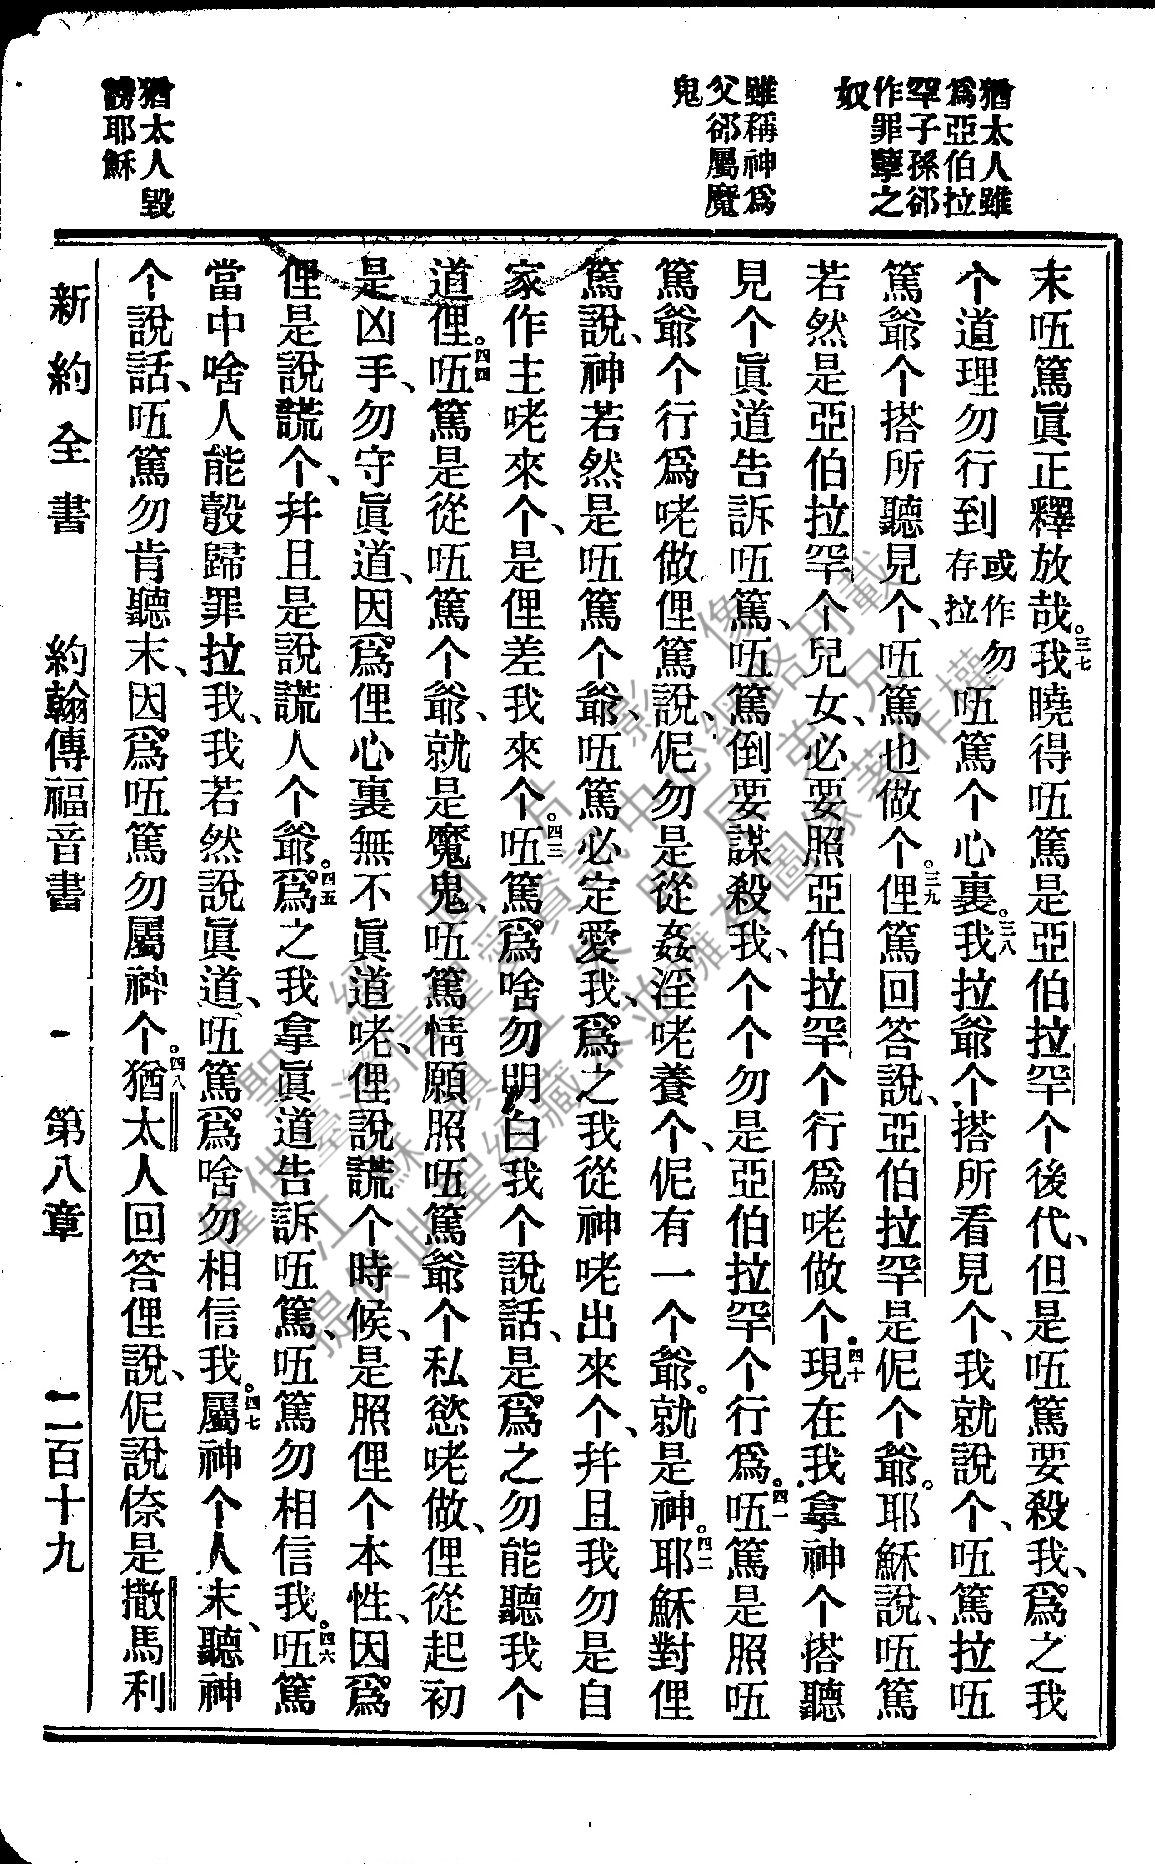 猶太人雖
爲亞伯拉
罕子孫郤
作罪孽之
奴
雖稱神爲
父郤屬魔
鬼
猶太人毀
謗耶穌
末㕶篤眞正釋放哉。三七我曉得㕶篤是亞伯拉罕个後代、但是㕶篤要殺我、爲之我
个道理勿行到或作勿存拉㕶篤个心裏。三八我拉爺个搭所看見个、我就說个、㕶篤拉㕶
篤爺个搭所聽見个、㕶篤也做个。三九俚篤回答說、亞伯拉罕是伲个爺。耶穌說、㕶篤
若然是亞伯拉罕个兒女、必要照亞伯拉罕个行爲咾做个。四十現在我拿神个搭聽
見个眞道告訴㕶篤、㕶篤倒要謀殺我、个个勿是亞伯拉罕个行爲。四一㕶篤是照㕶
篤爺个行爲咾做俚篤說、伲勿是從姦淫咾養个、伲有一个爺。就是神。四二耶穌對俚
篤說、神若然是㕶篤个爺、㕶篤必定愛我、爲之我從神咾出來个、幷且我勿是自
家作主咾來个、是俚差我來个。四三㕶篤爲啥勿明白我个說話、是爲之勿能聽我个
道俚。四四㕶篤是從㕶篤个爺、就是魔鬼、㕶篤情願照㕶篤爺个私慾咾做、俚從起初
是凶手、勿守眞道、因爲俚心裏無不眞道咾、俚說謊个時候、是照俚个本性、因爲
俚是說謊个、幷且是說謊人个爺。四五爲之我拿眞道告訴㕶篤、㕶篤勿相信我。四六㕶篤
當中啥人能彀歸罪拉我、我若然說眞道、㕶篤爲啥勿相信我。四七屬神个人末、聽神
个說話、㕶篤勿肯聽末、因爲㕶篤勿屬神个。四八猶太人回答俚說、伲說倷是撒馬利
新約全書 約翰傳福音書 第八章 二百十九
聖經圖片影像
僅供臺灣信望愛資訊中心網路刊載
提供此聖經藏本並擁有圖像著作權